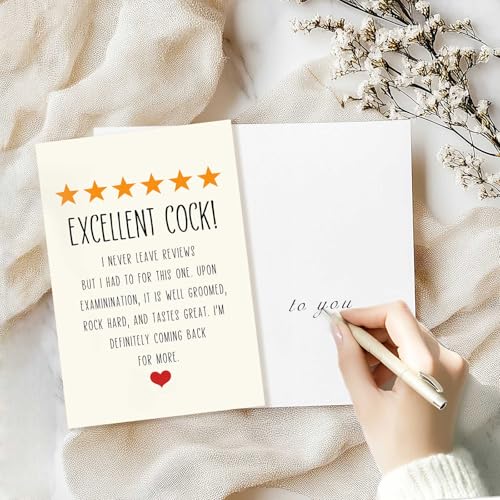 EXCELLENT COCK!
I NEVER LEAVE REVIEWS
BUT I HAD TO FOR THIS ONE. UPON
EXAMININATION, IT IS WELL GROOMED,
ROCK HARD, AND TASTES GREAT. I'M
DEFINITELY COMING BACK
FOR MORE.
to you